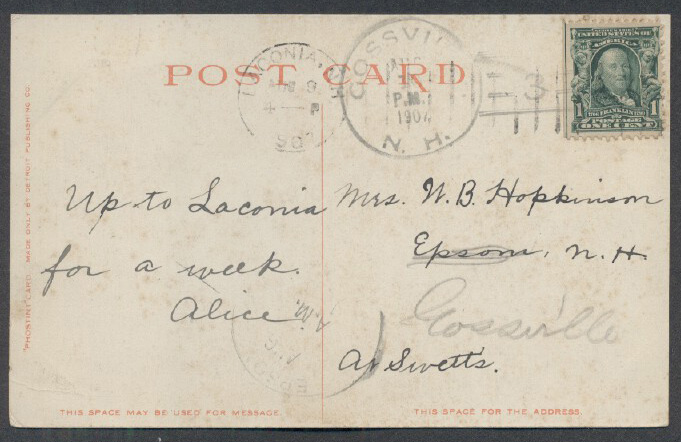 POST CARD
LACONIA, N.H.
AUG 9
4 — P
1907
GOSSVILLE
AUG
P.M.
1907
N. H.
3
UNITED STATES OF
AMERICA
FRANKLIN
1 1
POSTAGE
ONE CENT
"PHOSTINT" CARD. MADE ONLY BY DETROIT PUBLISHING CO.
Up to Laconia
for a week.
Alice
Mrs. W. B. Hopkinson
Epsom, N. H.
Gossville
At Swett's.
EPSOM
AUG
A.M.
THIS SPACE MAY BE USED FOR MESSAGE.
THIS SPACE FOR THE ADDRESS.